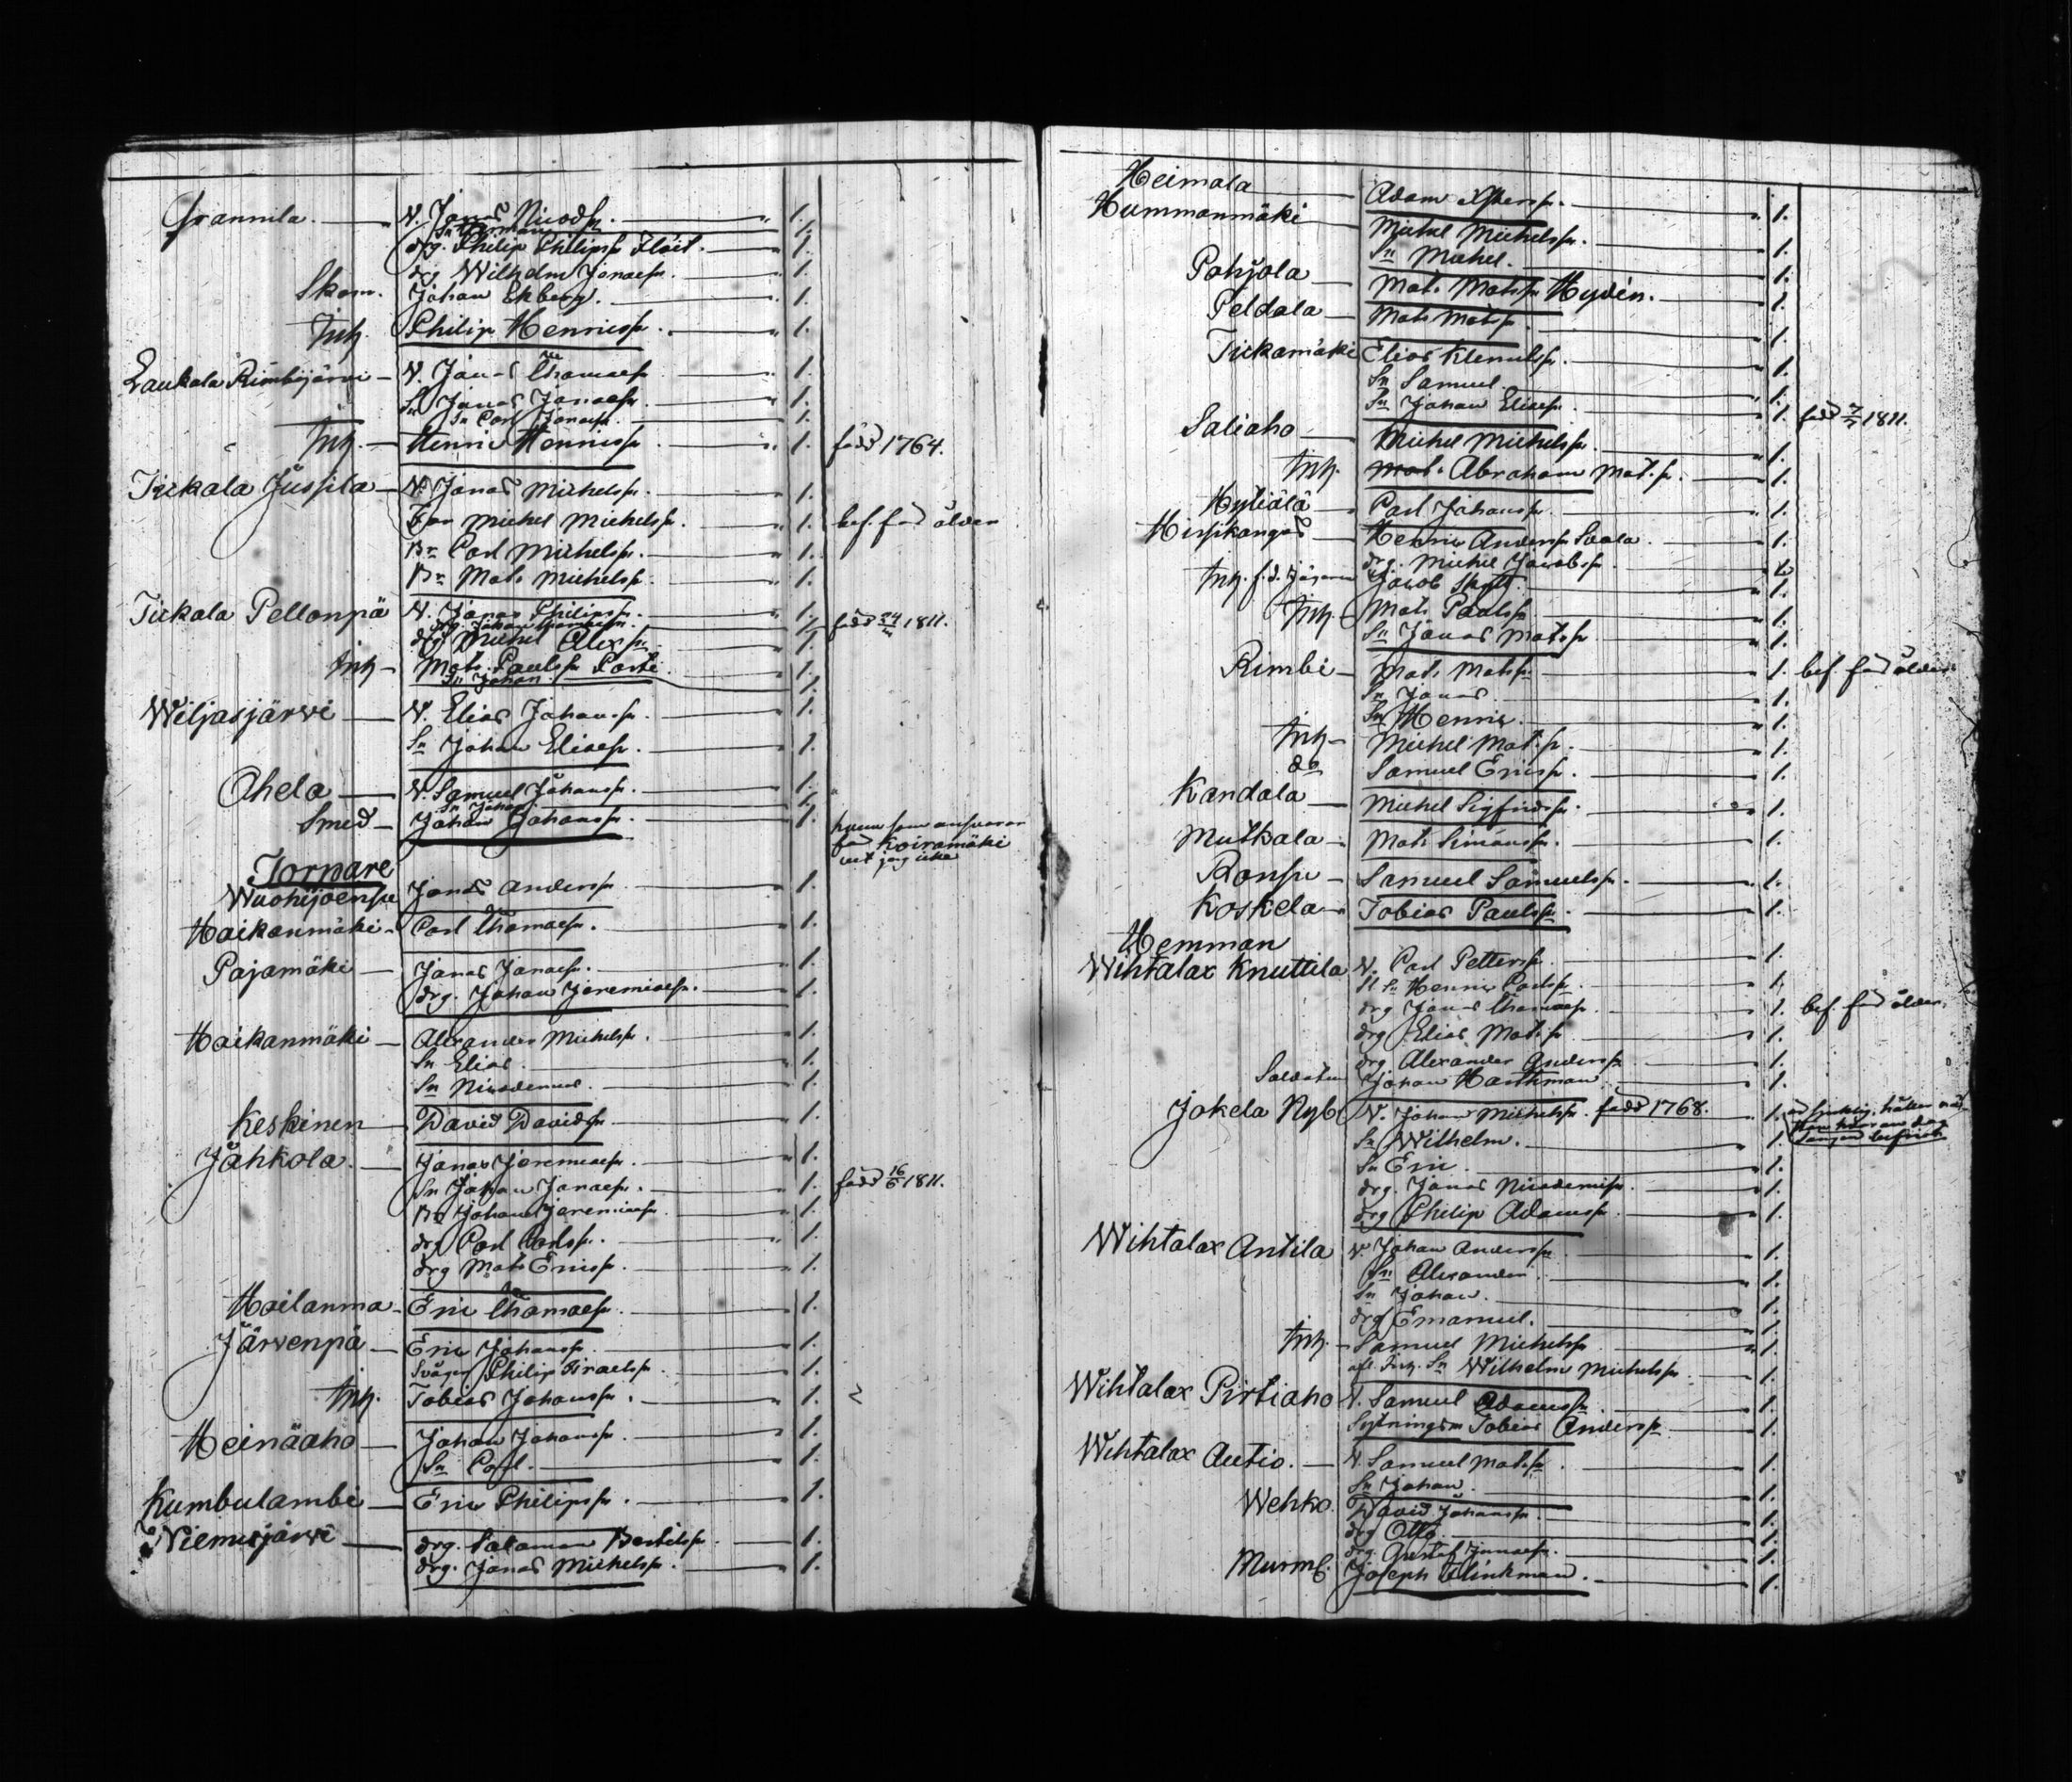 Grannila. W. Jonas Nicodsn. 1.
Sn Herman 1.
drg. Philip Philipssn Flöit. 1.
drg Wilhelm Jonaesn. 1.
Skom. Johan Ekberg. 1.
Inh. Philip Henricssn. 1.
Laukala Rimbijärvi W. Jonas Thomaesn 1.
Sn Jonas Jonaesn 1.
Sn Carl Jonaesn 1.
Inh. Henric Henricssn 1. född 1764.
Tiekala Jussila W. Jonas Michelssn. 1.
Bror Michel Michelssn. 1. bef. för ålder
Br Carl Michelssn. 1.
Br Mats Michelssn. 1.
Tiekala Pellonpä W. Jonas Philipssn. 1. född 24/4 1811.
drg. Johan Thomaesn. 1.
drg Michel Alexsn 1.
Inh Mats Paulssn Porti 1.
Sn Johan. 1.
Wiljasjärwi W. Elias Johanssn. 1.
Sn Johan Eliaesn. 1.
Ahela W. Samuel Johanssn. 1.
Sn Johan 1.
Smed Johan Johanssn. 1.
hvem som ansvarar
för Koiramäki
vet jag icke
Torpare
Wuohijoensu Jonas Anderssn 1.
Haikanmäki Carl Thomaesn. 1.
Pajamäki Jonas Jonaesn. 1.
drg. Johan Jeremiaesn. 1.
Haikanmäki Alexander Michelssn. 1.
Sn Elias. 1.
Sn Nicodemus. 1.
Keskinen David Davidssn 1.
Jähkola. Jonas Jeremiaesn. 1.
Sn Johan Jonaesn. 1. född 16/6 1811.
Br Johan Jeremiaesn. 1.
drg Carl Carlssn. 1.
drg Mats Ericssn. 1.
Hailanma Eric Thomaesn. 1.
Järvenpä Eric Johanssn. 1.
Svåger Philip Israelssn. 1.
Inh. Tobias Johanssn. 1.
Heinäaho Johan Johanssn. 1.
Sn Carl. 1.
Kumbulambi Eric Philipssn. 1.
Niemisjärwi drg. Salomon Bertilssn. 1.
drg. Jonas Michelssn. 1.
Heimala Adam 1.
Hummanmäki Michel Michelssn. 1.
Sn Michel. 1.
Pohjola Mats Matssn Hydén. 1.
Peldola Mats Matssn. 1.
Tiekamäki Elias Klemelssn. 1.
Sn Samuel. 1.
Sn Johan Eliaesn. 1. född 7/7 1811.
Saliaho Michel Michelssn. 1.
Inh. Abraham Matssn. 1.
Hytiälä Carl Johanssn. 1.
Hirsikangas Henric Anderssn Saala. 1.
drg. Michel Jacobssn.
Inh. f.d. Jägaren Jacob Skytt. 1.
Inh. Mats Paulssn 1.
Sn Jonas Matssn 1.
Rimbi Mats Matssn 1. bef. för ålder
Sn Jonas 1.
Sn Henric. 1.
Inh Michel Matssn. 1.
do Samuel Ericssn. 1.
Kandola Michel Sigfridssn. 1.
Mutkala Mats Simonssn. 1.
Ronsu Samuel Samuelssn. 1.
Koskela Tobias Paulssn. 1.
Hemman
Wihtalax Knuttila W. Carl Petterssn 1.
Sn Henric Carlssn. 1.
drg Jonas Thomaesn 1. bef. för ålder.
drg Elias Matssn 1.
drg Alexander Anderssn 1.
Soldaten Johan Harthman 1.
Jokela Nyb. W. Johan Michelssn. född 1768. 1.
Sn Wilhelm. 1.
Sn Eric. 1.
drg. Jonas Nicodemisn. 1.
drg Philip Adamssn. 1.
Wihtalax Antila W. Johan Anderssn 1.
Sn Alexander. 1.
Sn Johan. 1.
drg Emanuel. 1.
Inh. Samuel Michelssn. 1.
Inh. Sn Wilhelm Michelssn 1.
Wihtalax Pirtiaho W. Samuel Adamssn 1.
Sytningsm Tobias Anderssn. 1.
Wihtalax Autio. W. Samuel Matssn 1.
Sn Johan. 1.
Wehko. David Johanssn. 1.
drg Otto. 1.
drg. Gustaf Jonaesn. 1.
Murm. Joseph Flinkman. 1.